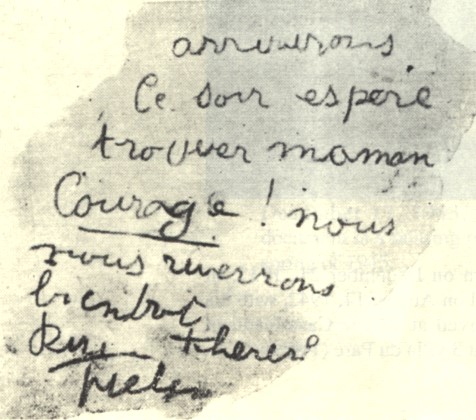 arriverons
Ce soir espere
trouver maman
Courage ! nous
nous reverrons
bientôt